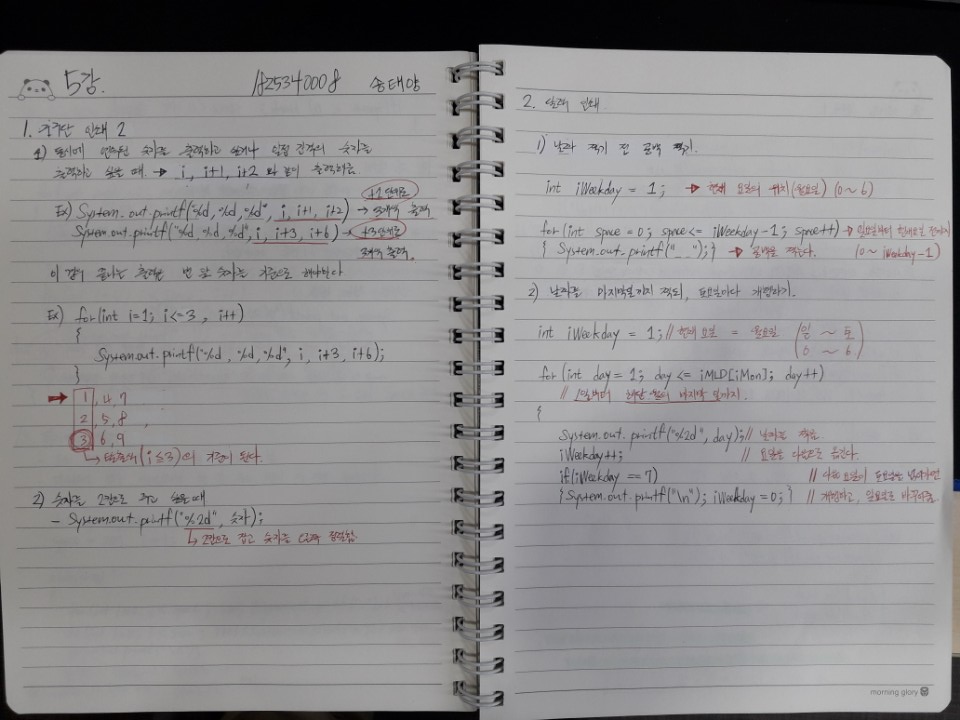 5강. 1825340008 송태양
1. 구구단 인쇄 2
1) 동시에 연속된 숫자를 출력하고 싶거나 일정 간격의 숫자를
출력하고 싶을 때. → i, i+1, i+2 와 같이 출력해줌.
+1 단위로
Ex) System.out.printf("%d, %d, %d", i, i+1, i+2) → 3개씩 출력
System.out.printf("%d, %d, %d", i, i+3, i+6) → +3 단위로
3개씩 출력.
이 같이 끝나는 출력은 맨 앞 숫자를 기준으로 해야한다
Ex) for(int i=1; i<=3, i++)
{
System.out.printf("%d, %d, %d", i, i+3, i+6);
}
→ 1, 4, 7
2, 5, 8,
3, 6, 9
(i≤3)의 기준이 된다.
2) 숫자를 2칸으로 하고 싶을 때
- System.out.printf("%2d", 숫자);
↳ 2칸으로 잡고 숫자를 정렬함
2. 달력 인쇄
1) 날짜 찍기 전 공백 찍기.
int iWeekday = 1; → 현재 요일의 위치(월요일) (0~6)
for(int space = 0; space <= iWeekday-1; space++) → 일요일부터 현재요일 전까지
{ System.out.printf("_ _"); } → 공백을 찍는다. (0 ~ iWeekday-1)
2) 날짜를 마지막일까지 찍되, 토요일마다 개행하기.
int iWeekday = 1; // 현재 요일 = 월요일 (일 ~ 토
0 ~ 6)
for(int day = 1; day <= iMLD[iMon]; day++)
// 1일부터 해당 월의 마지막 일까지.
{
System.out.printf("%2d", day); // 날짜를 찍음
iWeekday++; // 요일을 다음으로 옮긴다.
if(iWeekday == 7) // 다음 요일이 토요일을 넘어가면
{ System.out.printf("\n"); iWeekday = 0; } // 개행하고, 일요일로 바꿔줌.
morning glory